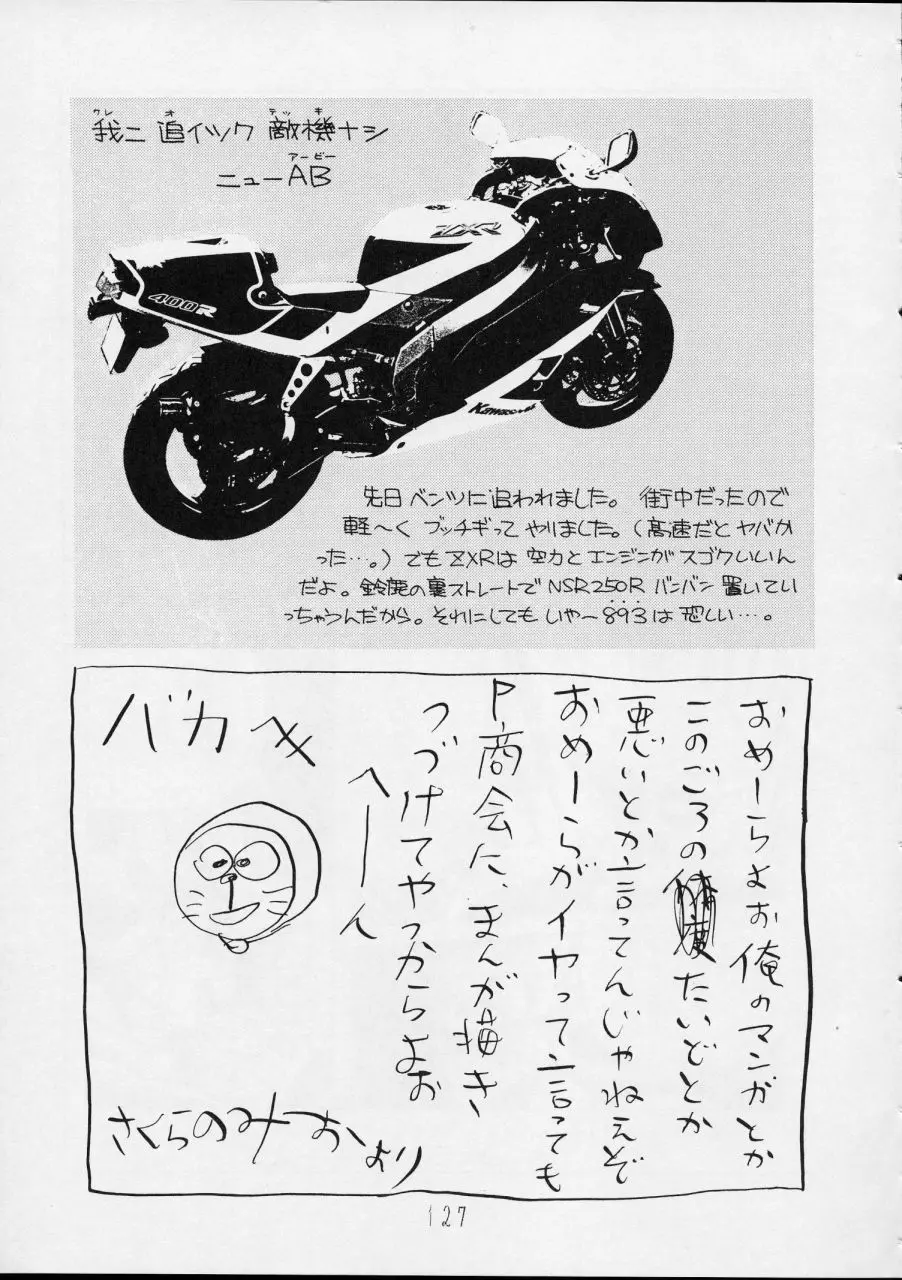 我ニ 追イツク 敵機ナシ
ワレ オ テッキ
ニューAB
アービー
ZXR
400R
Kawasaki
先日 ベンツに追われました。 街中だったので
軽〜く ブッチギって やりました。(高速だと ヤバか
った…。)でも ZXRは 空力と エンジンが スゴクいいん
だよ。鈴鹿の裏ストレートで NSR250R バンバン 置いてい
っちゃうんだから。それにしても いやー893は 恐しい…。
おめーらよお俺のマンガとか
このごろのたいどとか
悪いとか言ってんじゃねえぞ
おめーらがイヤって言っても
P.商会に、まんが描き
つづけてやっからよお
へーん
バカめ
さくらのみつおより
127